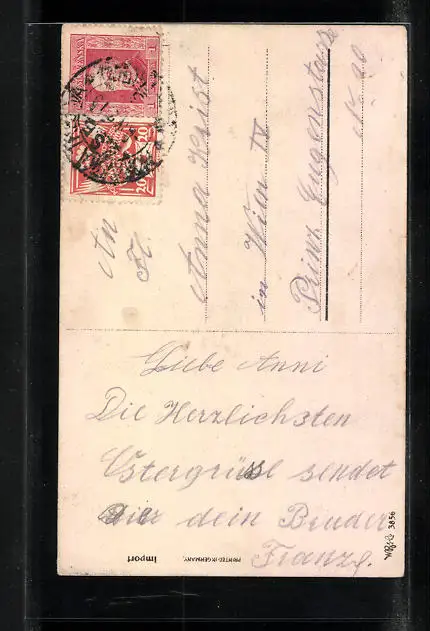 An
Fr.
Anna
in Wien IV
Prinz Eugenstasse
Liebe Anni
Die Herzlichsten
Ostergrüsse sendet
dir dein Bruder
Franzl.
import
PRINTED IN GERMANY.
3856
20 20